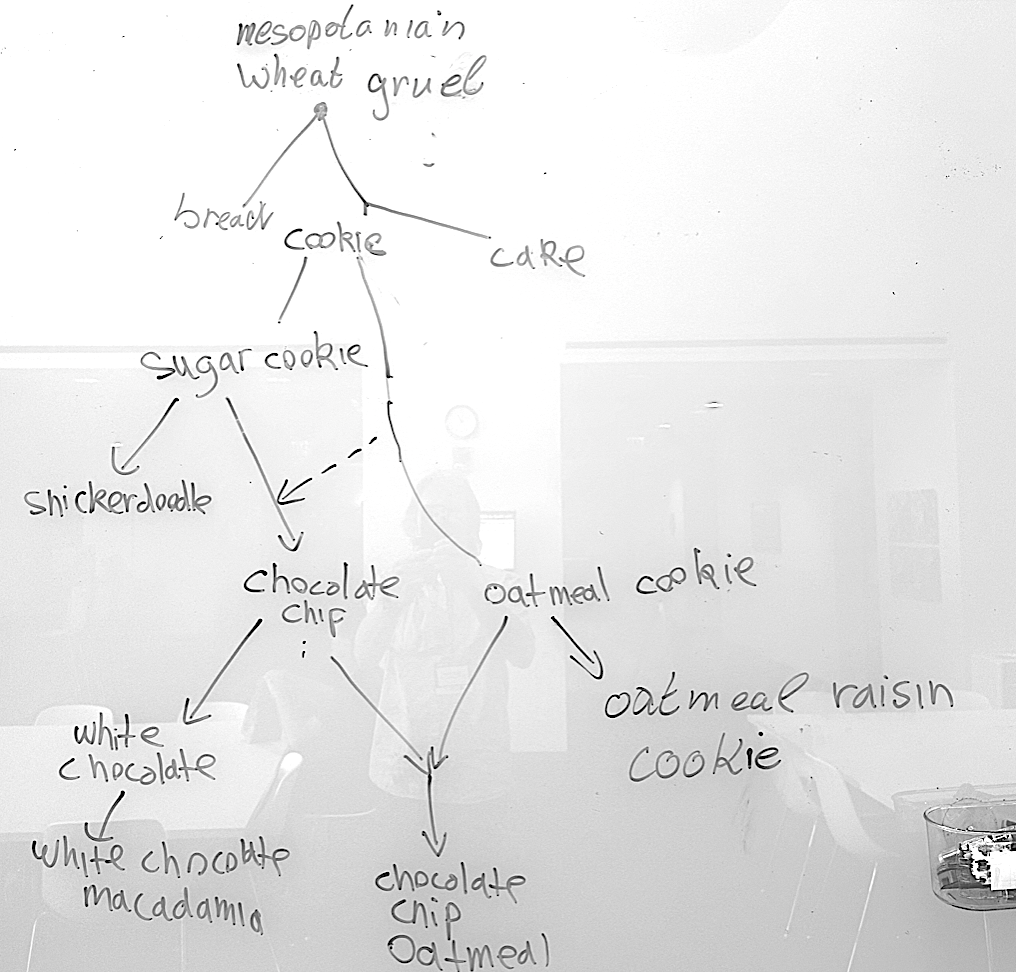 mesopotanian
wheat gruel
bread
cookie
cake
sugar cookie
shickerdoodle
chocolate
chip
oatmeal cookie
oatmeal raisin
cookie
white
chocolate
white chocolate
macadamia
chocolate
chip
Oatmeal